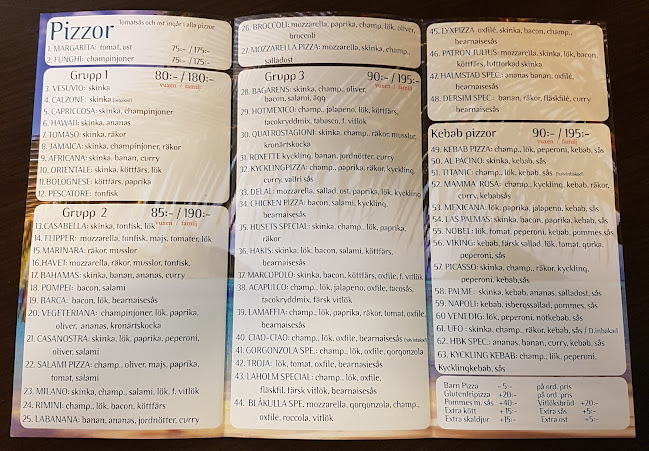 Pizzor
Tomatsås och ost ingår i alla pizzor
1. MARGARITA: tomat, ost 75:- / 175:-
2. FUNGHI: champinjoner 75:- / 175:-
Grupp 1 80:-/180:-
vuxen / familj
3. VESUVIO: skinka
4. CALZONE: skinka (inbakad)
5. CAPRICCOSA: skinka, champinjoner
6. HAWAII: skinka, ananas
7. TOMASO: skinka, räkor
8. JAMAICA: skinka, champinjoner, räkor
9. AFRICANA: skinka, banan, curry
10. ORIENTALE: skinka, köttfärs, lök
11. BOLOGNESE: köttfärs, paprika
12. PESCATORE: tonfisk
Grupp 2 85:-/190:-
vuxen / familj
13. CASABELLA: skinka, tonfisk, lök
14. FLIPPER: mozzarella, tonfisk, majs, tomater, lök
15. MARINARA: räkor, musslor
16. HAVET: mozzarella, räkor, musslor, tonfisk
17. BAHAMAS: skinka, banan, ananas, curry
18. POMPEI: bacon, salami
19. BARCA: bacon, lök, bearnaisesås
20. VEGETERIANA: champinjoner, lök, paprika,
oliver, ananas, kronärtskocka
21. CASANOSTRA: skinka, lök, paprika, peperoni,
oliver, salami
22. SALAMI PIZZA: champ., oliver, majs, paprika,
tomat, salami
23. MILANO: skinka, champ., salami, lök, f. vitlök
24. RIMINI: champ., lök, bacon, köttfärs
25. LABANANA: banan, ananas, jordnötter, curry
26. BROCCOLI: mozzarella, paprika, champ., lök, oliver,
broccoli
27. MOZZARELLA PIZZA: mozzarella, skinka, champ.,
salladost
Grupp 3 90:-/195:-
vuxen / familj
28. BAGARENS: skinka, champ., oliver,
bacon, salami, ägg
29. HOTMEXICO: champ., jalapeno, lök, köttfärs,
tacokryddmix, tabasco, f. vitlök
30. QUATROSTAGIONI: skinka, champ., räkor, musslor,
kronärtskocka
31. ROXETTE kyckling, banan, jordnötter, curry
32. KYCKLINGPIZZA: champ., paprika, räkor, kyckling,
curry, valfri sås
33. DELAL: mozzarella, sallad. ost, paprika, lök, kyckling
34. CHICKEN PIZZA: bacon, salami, kyckling,
bearnaisesås
35. HUSETS SPECIAL: skinka, champ., lök, paprika,
räkor
36. HAKIS: skinka, lök, bacon, salami, köttfärs,
bearnaisesås
37. MARCOPOLO: skinka, bacon, köttfärs, oxfile, f. vitlök
38. ACAPULCO: champ., lök, jalapeno, oxfile, tacosås,
tacokryddmix, färsk vitlök
39. LAMAFFIA: champ., lök, paprika, tomat, oxfile,
bearnaisesås
40. CIAO-CIAO: champ., lök, oxfile, bearnaisesås (halvinbakad)
41. GORGONZOLA SPE.: champ., lök, oxfile, gorgonzola
42. TROJA: lök, tomat, oxfile, bearnaisesås
43. LAHOLM SPECIAL: champ., lök, oxfile,
fläskfil, färsk vitlök, bearnaisesås
44. BLÅKULLA SPE. mozzarella, gorgonzola, champ.,
oxfile, roccola, vitlök
45. LYXPIZZA: oxfilé, skinka, bacon, champ.,
bearnaisesås
46. PATRON JULIUS: mozzarella, skinka, lök, bacon,
köttfärs, lufttorkad skinka
47. HALMSTAD SPEC: ananas banan, oxfile,
bearnaisesås
48. DERSIM SPEC.: banan, räkor, fläskfilé, curry,
bearnaisesås
Kebab pizzor 90:-/ 195:-
vuxen / familj
49. KEBAB PIZZA: champ., lök, peperoni, kebab, sås
50. AL PACINO: skinka, kebab, sås
51. TITANIC: champ., lök, kebab, sås (halvinbakad)
52. MAMMA ROSA: champ., kyckling, kebab, räkor,
curry, kebabsås
53. MEXICANA: lök, paprika, jalapeno, kebab, sås
54. LAS PALMAS: skinka, bacon, paprika, kebab, sås
55. NOBEL: lök, tomat, peperoni, kebab, pommes, sås
56. VIKING: kebab, färsk sallad, lök, tomat, gurka,
peperoni, sås
57. PICASSO: skinka, champ., räkor, kyckling,
peperoni, kebab, sås
58. PALME: skinka, kebab, ananas, salladost, sås
59. NAPOLI: kebab, isbergssallad, pommes, sås
60 VENEDIG: lök, peperoni, nötkebab, sås
61. UFO : skinka, champ., räkor, kebab, sås / D.inbakad)
62. HBK SPEC.: ananas, banan, curry, kebab, sås
63. KYCKLING KEBAB: champ., lök, peperoni,
Kycklingkebab, sås
Barn Pizza -5:- på ord. pris
Glutenfripizza +20:- på ord. pris
Pommes m. sås +40:- Vitlöksbröd +20:-
Extra kött +15:- Extra sås +5:-
Extra skaldjur +15:- Extra ost +5:-